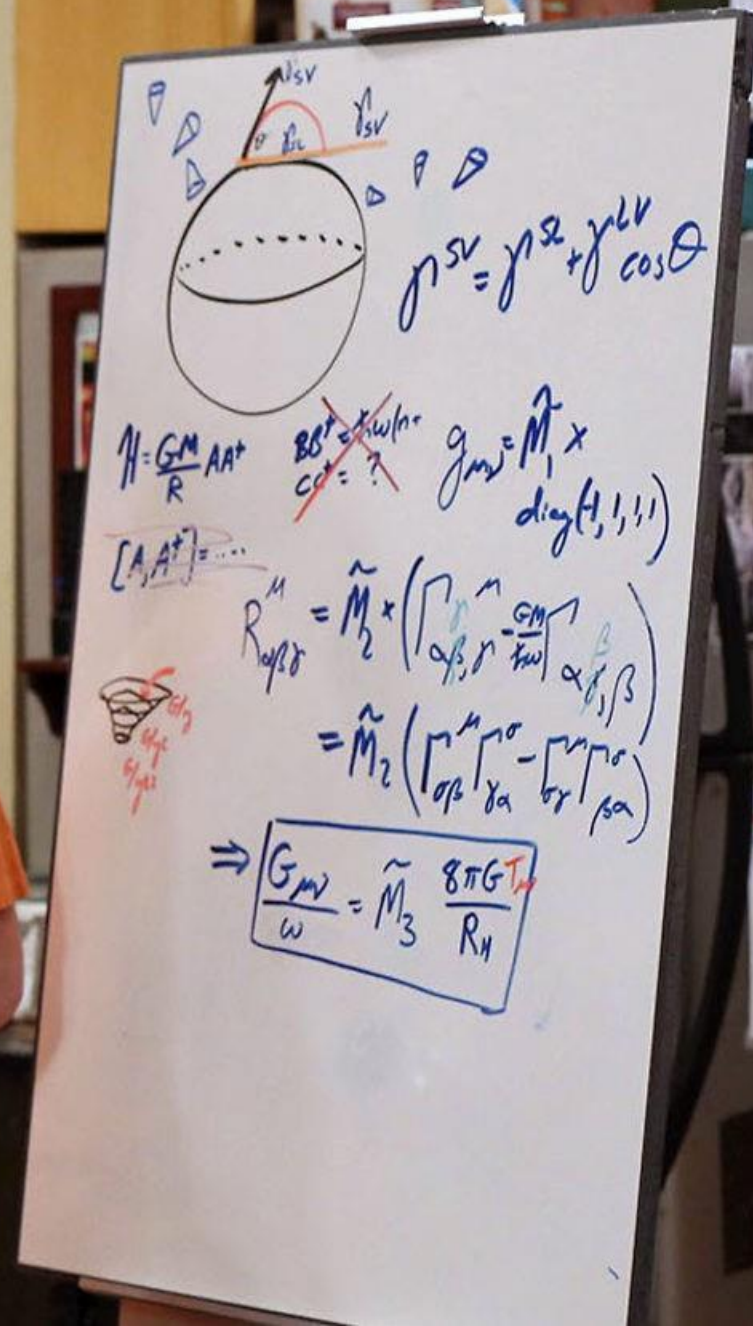 γ_SV
θ γ_SL γ_SV
γ^SV = γ^SL + γ^LV cosθ
H = GM/R AA⁺
BB⁺ = ħω(n+
CC⁺ = ?
g_μν = M̃₁ ×
diag(-1, 1, 1, 1)
[A, A⁺] = ....
R^μ_αβγ = M̃₂ × (Γ^μ_αβ,γ - GM/ħω Γ_αγ,β)
= M̃₂ (Γ^μ_σβ Γ^σ_γα - Γ^μ_σγ Γ^σ_βα)
⇒ G_μν/ω = M̃₃ 8πG T_μ/R_H